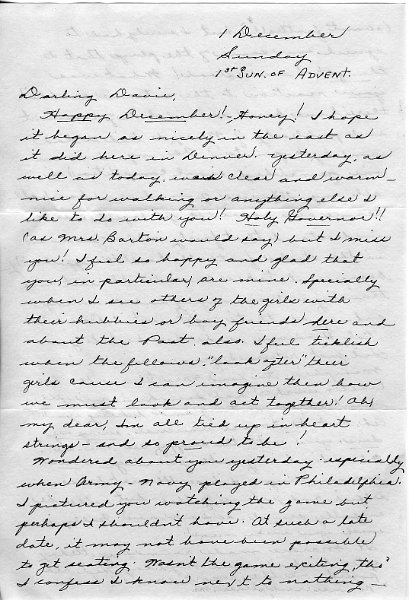 1 December
Sunday
1st SUN. OF ADVENT.
Darling Davie,
Happy December! - Honey! I hope
it began as nicely in the east as
it did here in Denver. Yesterday, as
well as today, was clear and warm -
nice for walking or anything else I
like to do with you! Holy Governor!!
(as Mrs. Barton would say) but I miss
you! I feel so happy and glad that
you, in particular, are mine. Specially
when I see others of the girls with
their hubbies or boy friends here and
about the Post, also. I feel ticklish
when the fellows, "look after" their
girls cause I can imagine then how
we must look and act together! Ah,
my dear, I'm all tied up in heart
strings - and so proud to be!
Wondered about you yesterday - especially
when Army - Navy played in Philadelphia.
I pictured you watching the game but
perhaps I shouldn't have. At such a late
date, it may not have been possible
to get seating. Wasn't the game exciting, tho'
I confess I know next to nothing -